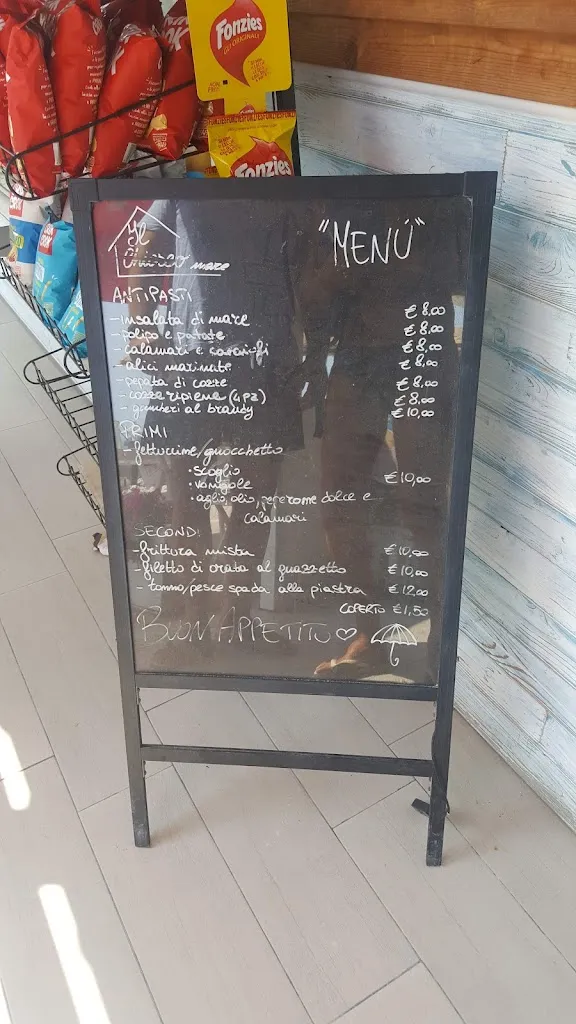 Fonzies
GLI ORIGINALI
Fonzies
Il
Chiosco mare
"MENÚ"
ANTIPASTI
- insalata di mare € 8,00
- polipo e patate € 8,00
- calamari e carciofi € 8,00
- alici marinate € 8,00
- pepata di cozze € 8,00
- cozze ripiene (4 pz) € 8,00
- gamberi al brandy € 10,00
PRIMI
- fettuccine/gnocchetto
• scoglio
• vongole € 10,00
• aglio, olio, peperone dolce e
calamari
SECONDI
- frittura mista € 10,00
- filetto di orata al guazzetto € 10,00
- tonno/pesce spada alla piastra € 12,00
COPERTO € 1,50
BUON APPETITO